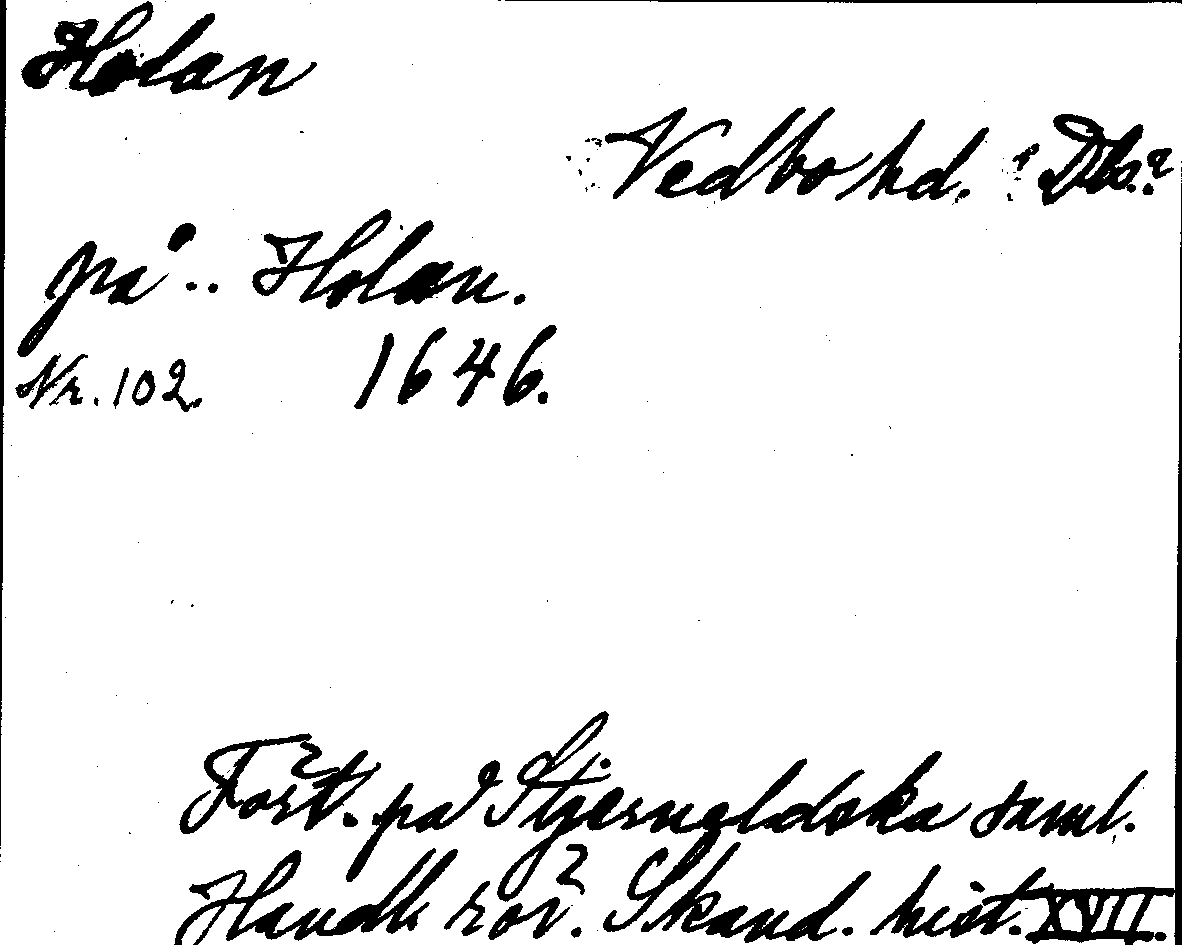 Holan
Vedbo hd. : Dls.?
på .. Holan.
Nr. 102. 1646.
Fört. på Stjerneldska saml.
Handl. rör. Skand. hist. XVII.